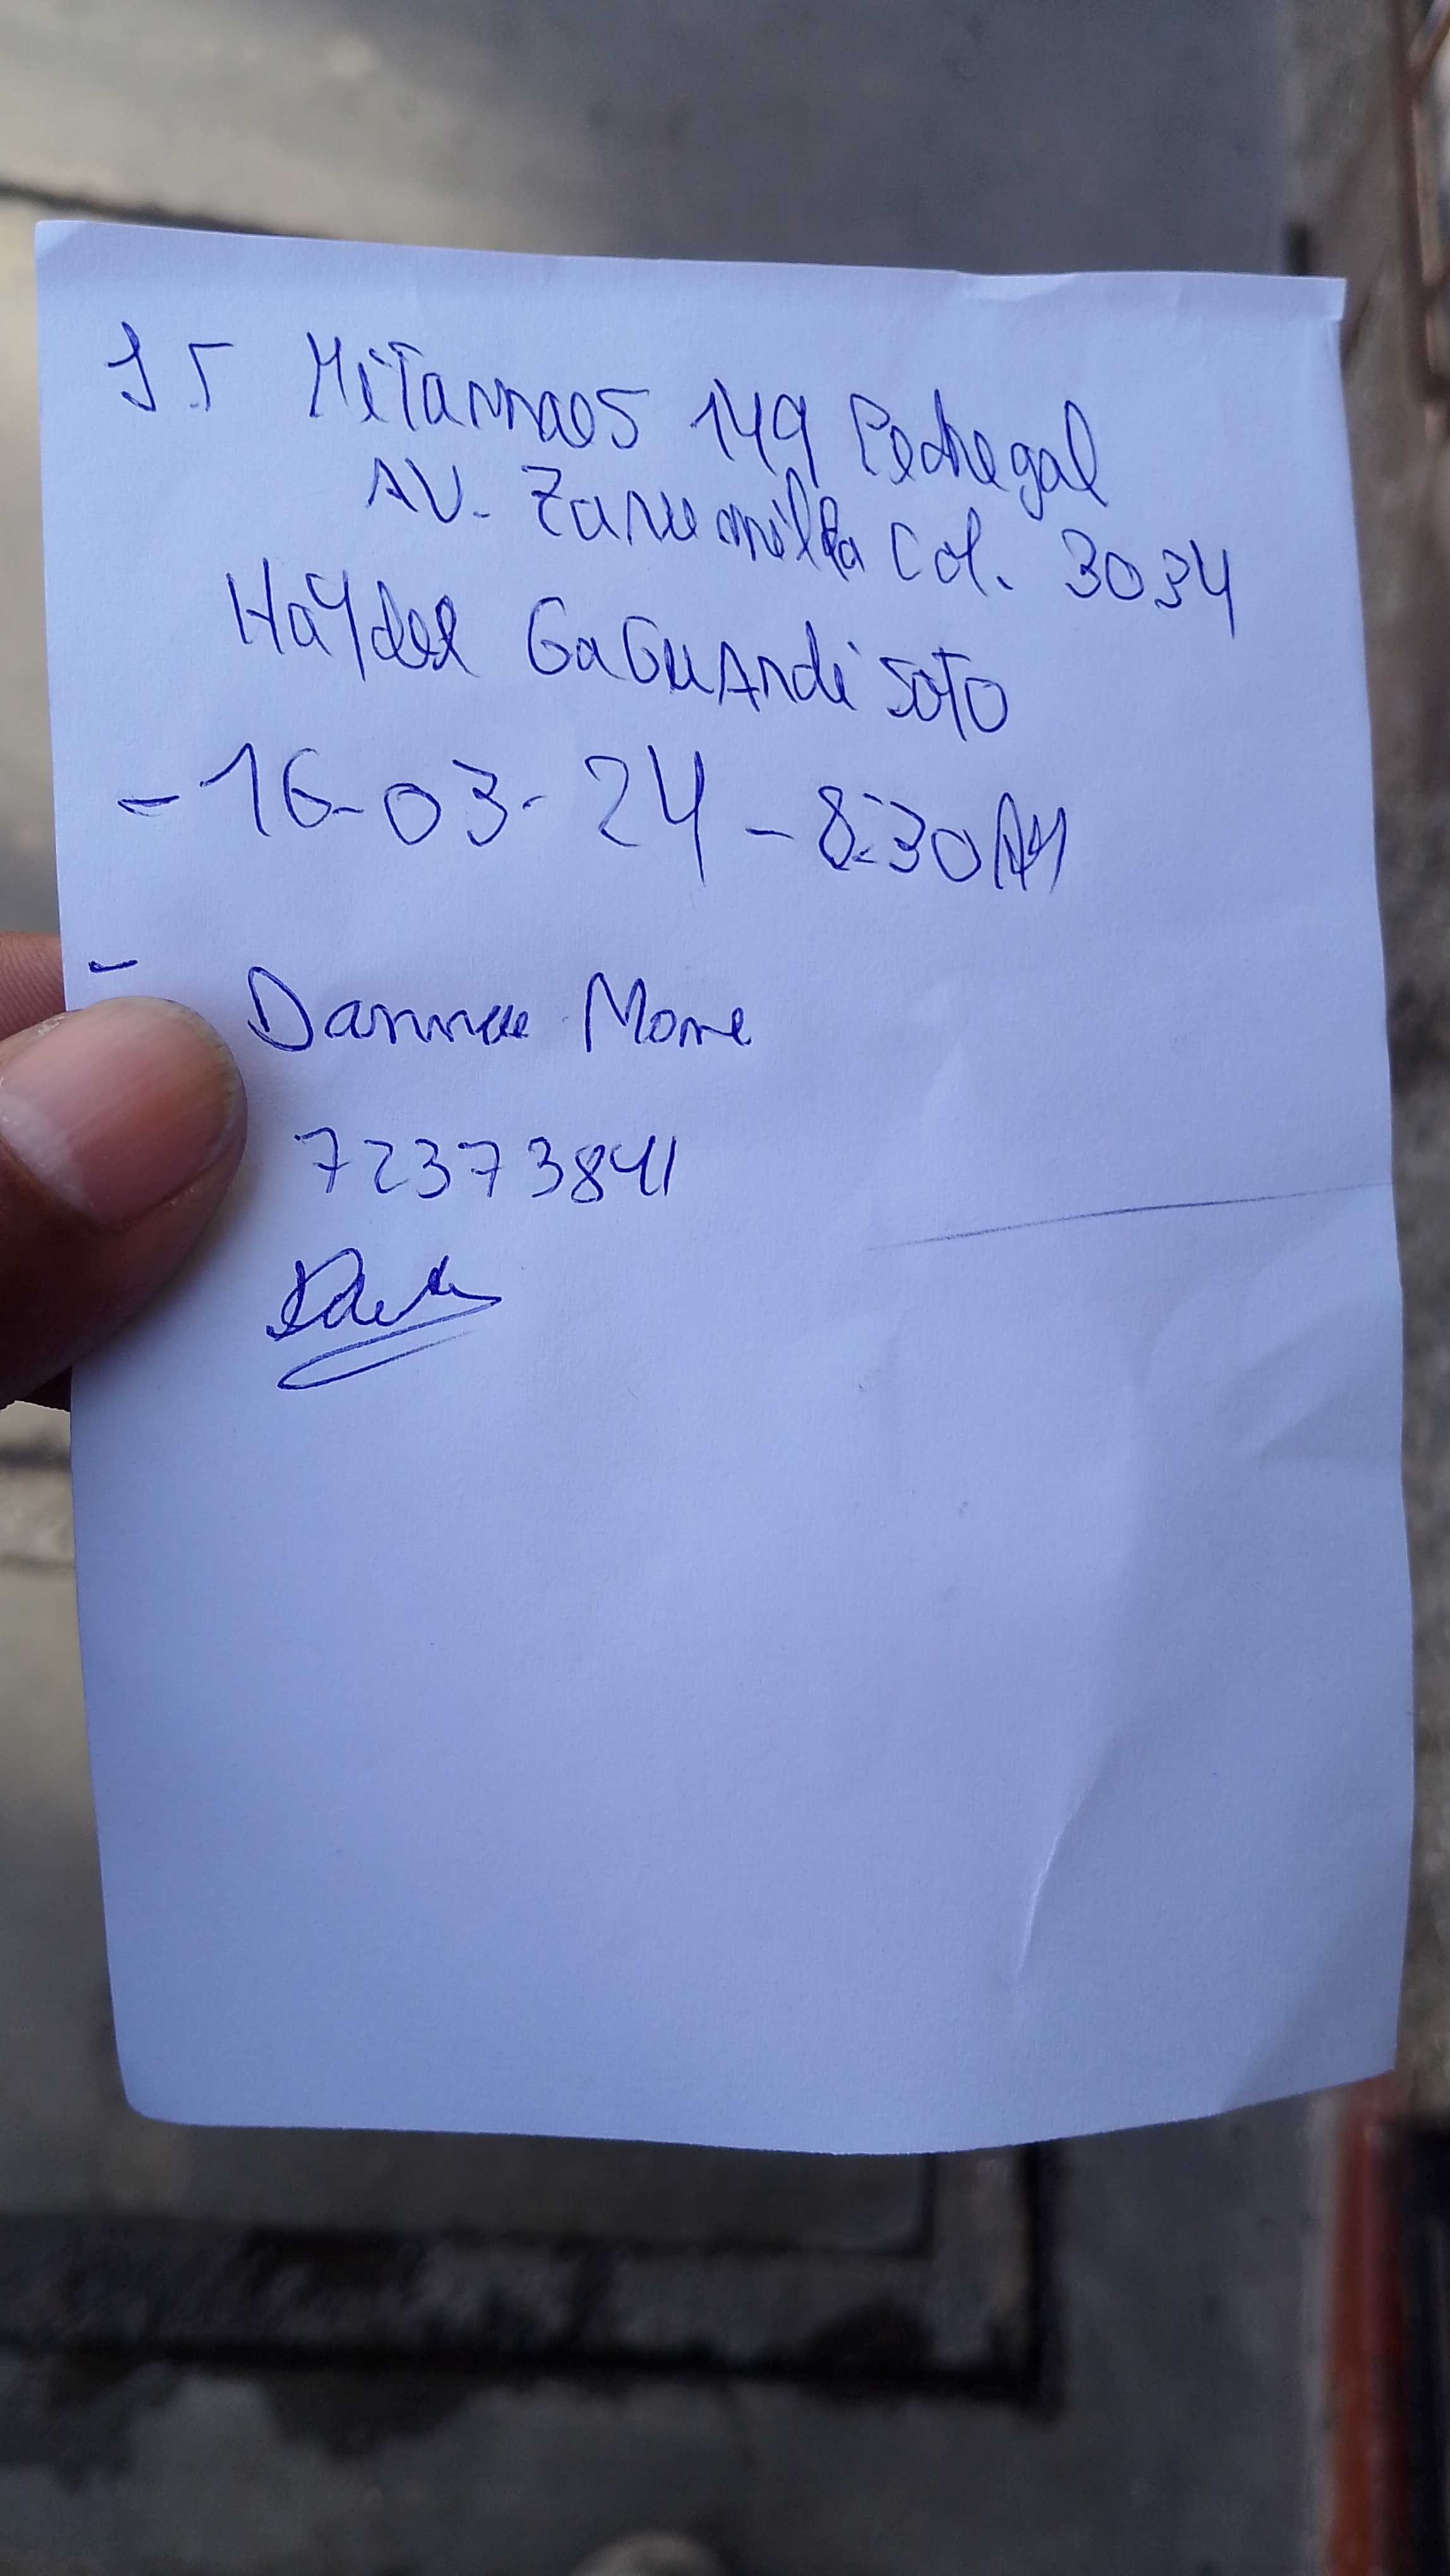 J.r Mitannaos 149 Pedregal
AV. Zarumilla Col. 3034
Haydee GaGuAndi soto
- 16-03-24 - 8:30 AM
- Dannae More
72373841